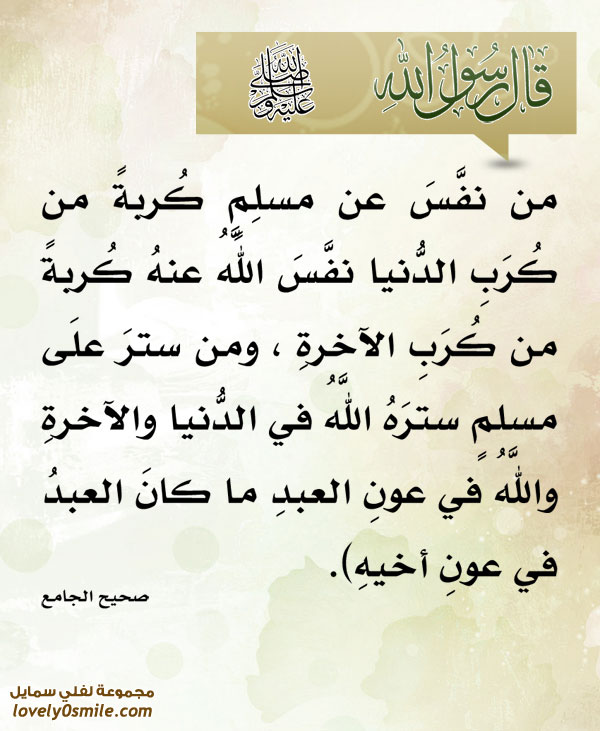 قال رسول الله صلى الله عليه وسلم
من نفَّسَ عن مسلِمٍ كُربةً من
كُرَبِ الدُّنيا نفَّسَ اللَّهُ عنهُ كُربةً
من كُرَبِ الآخرةِ ، ومن سترَ علَى
مسلمٍ سترَهُ اللَّهُ في الدُّنيا والآخرةِ
واللَّهُ في عونِ العبدِ ما كانَ العبدُ
في عونِ أخيهِ).
صحيح الجامع
مجموعة لفلي سمايل
lovely0smile.com